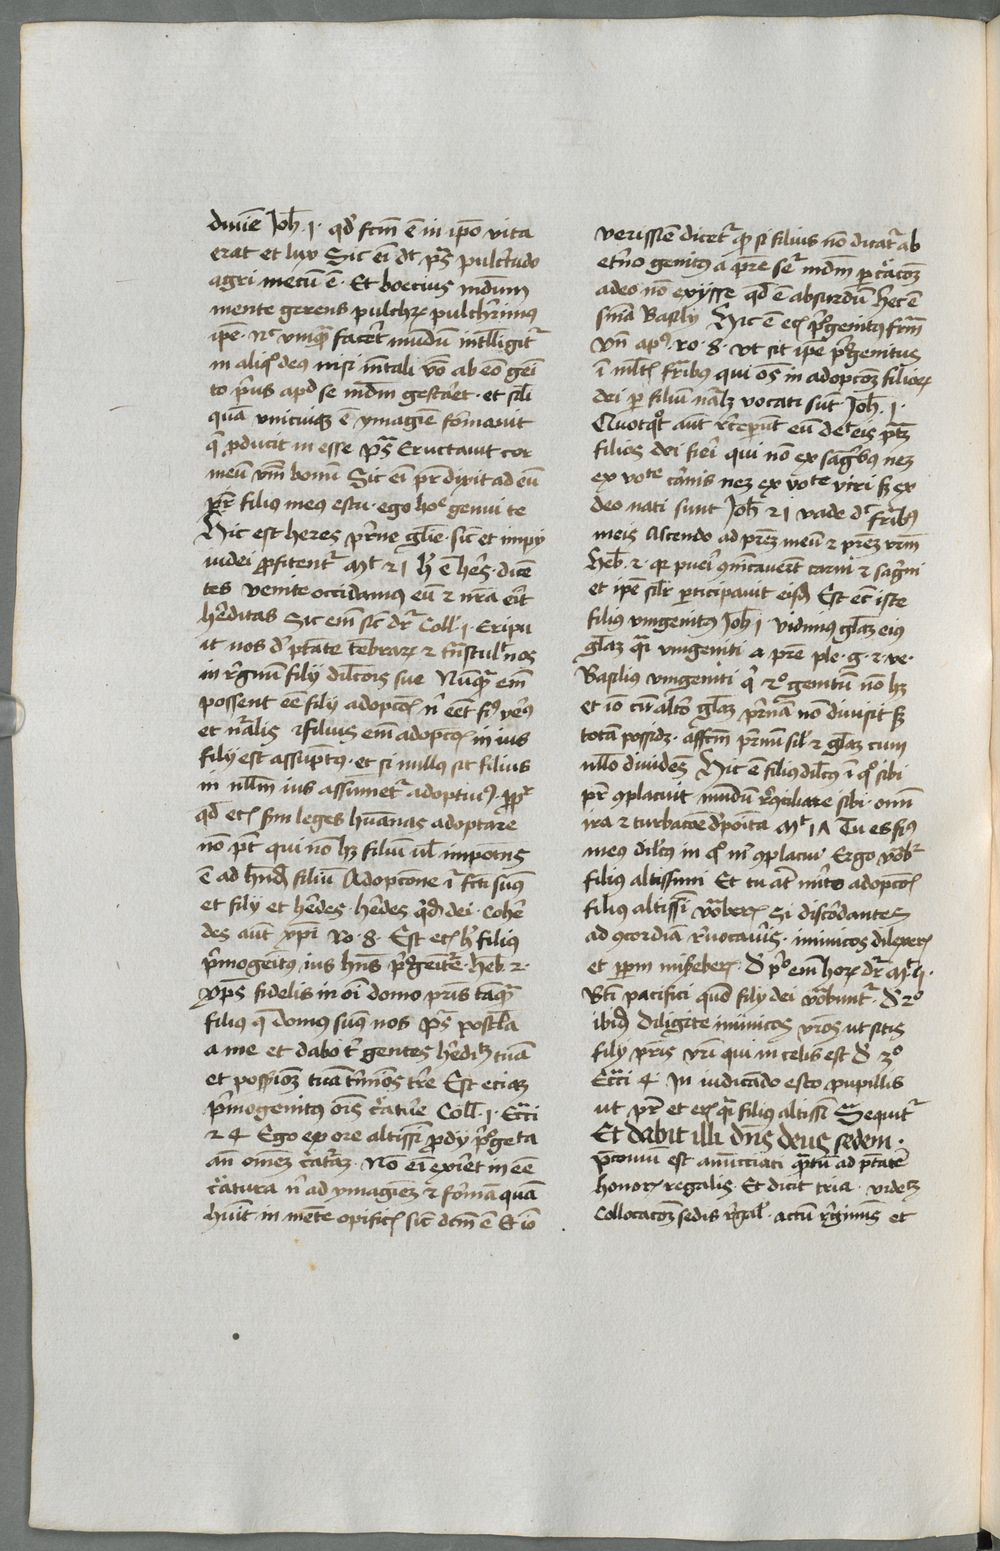 diuiē Joh̄ .1. qd' fcm̄ ē in ip̄o vita
erat et lux Sic ei dt p̄s pulc'tudo
agri mecū ē. Et boecius mdum
mente gerens pulchr pulch'rimus
ip̄e. nᶜ vmqᵃ facēt mūdū intlligit'
in aliqo deus nisi m̄tali v̄o ab eo gei
to p'us apd se mdm gestaret. et sīl
quā vnicuiqz ē ymagiē formauit
q' pducit in esse p̄s Eructauit cor
meū vm̄ bonū Sic ei pr̄ dixit ad eū
pr̄ filius meus es tu. ego hoᵉ genui te
Hic est heres pr̄ne gl̄ie. sic̄ et impij
iudei p̄fitent' Mᵗ 21 hᶦ ē hēs. dicē
tes venite occidamus eū 2 nr̄a erīt
h'editas Sic em̄ sic̄ dr̄ Coll'. 1. Eripu
it nos d' ptāte teb̄rarꝝ 2 tn̄stulᶦt nos
in r'gnū filij dilcōis sue Nūqᵃ em̄
possent eē filij adopcōꝫ nᶦ eēt fiꝰ verꝰ
et nᵃlis 2 filius em̄ adopcōꝫ in ius
filij est assupt̄ꝰ. et si nullus sit filius
in nll̄m ius assumet' adoptiuꝰ. p̄pt'
qd̄ etꝫ s̄m leges hūanas adoptare
nō pt̄ qui nō hꝫ filiū ul' impotns
ē ad hn̄dꝫ filiū Adopcōne iᵍ fcti sumꝰ
et filij et h'edes. h'edes qᵈē dei. Cohē
des aūt xp̄i Ro. 8. Est etꝫ hᶦ filius
p'mogeitus ius hn̄s p'geiture. heb̄. 2.
xp̄s fidelis in oī domo pr̄is tāqᵃ
filius q̄ domus sumꝰ nos p̄s postl̄a
a me et dabo tᶦ gentes h'editꝫ tuā
et possiōꝫ tuā t'mīos tr̄e Est etiaꝫ
p'mogenitus oīs c'ature Coll'. 1. Ecc̄i
24 Ego ex ore altissī pdij p'geta
añ omēꝫ c'aturā. Nō ei exīret in eē
c'atura nᶦ ad ymagiēꝫ 2 formā quā
h̄uit in mēte opificꝫ sic̄ dcm̄ ē Et iō
verissiē dicet' qᵈ si filius nō dicat' ab
et'no genitus a p̄re seᵗ mdm p c'acōꝫ
adeo nō exijsse qd̄ ē absurdū hec ē
sn̄ia Basilij Hic ē etꝫ p'genitus frm̄
Vn̄ ap̄ꝰ. ro. 8. vt sit ip̄e p'genitus
ī ml̄tꝫ fr̄ibus qui oēs in adopcōꝫ filioꝝ
dei p filiū nᵃlꝫ vocati sūt. Joh̄. 1.
Quotqᵗ aūt r'ceperūt eū det eis ptꝫ
filios dei fieri qui nō ex sāg'ibꝰ neꝫ
ex volᵗᵉ c'nis neꝫ ex volᵗᵉ viri sꝫ ex
deo nati sunt Joh̄ 21 vade dᶜ fr̄ibus
meis Ascendo ad pr̄eꝫ meū 2 pr̄eꝫ vr̄m
Heb̄. 2. qᵃ pueri 9mᵗicauēt carni 2 sāg'ni
et ip̄e sil'r p'ticipauit eisdꝫ Est ec̄ iste
filius vnigenitus Joh̄ 1 vidimus gl̄iaꝫ eius
gl̄iaꝫ qᵃi vnigeniti a p̄re ple. g. 2. ve.
Basilius vnigeniti qᶦ 2º genitū nō hꝫ
et iō cū alt'o gl̄iaꝫ p'rnā nō diuisit sꝫ
totā possidꝫ. affcm̄ p'rnū sil' 2 gl̄iaꝫ cum
nll̄o diuidēs Hic ē filius dilcūs ī qº sibi
pr̄ 9placuit mūdū r'9ciliare sibi. omī
ira 2 turbacōe d'poīta Mᵗ 17 Tu es fiꝰ
meꝰ dilcūs in qº mᶦ 9placui Ergo vōb'r
filius altissimi Et tu aᵗ m'ito adopcōꝫ
filius altissī vōaberꝫ Si discordantes
ad 9cordiā r'uocau'is. inimicos dilexerꝫ
et ip̄m miseberꝫ. D pº em̄ horꝫ dr̄ Mᵗ q.
Bt̄i pacifici qm̄ filij dei vōabunt'. D 2º
ibiꝫ Diligite inimicos vr̄os ut sitis
filij pr̄is vr̄i qui in celis est D 3º
Ecc̄i 4. In iudicādo esto pupillis
ut pr̄ et erꝫ qᵃi filius altissī Sequit'
Et dabit illi dn̄s deus sedem.
p̄coniū est anūcciati qᵃtū ad ptāteꝫ
honorꝫ regalis. Et dicit tria. videꝫ
Collocacōꝫ sedis r'gal'. actū r'giminis et